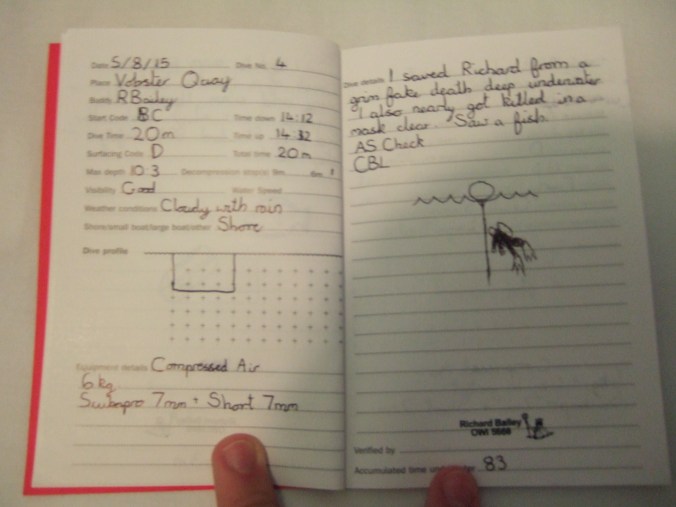 Date 5/8/15 Dive No. 4
Place Vobster Quay
Buddy R Bailey
Start Code BC Time down 14:12
Dive Time 20m Time up 14:32
Surfacing Code D Total time 20m
Max depth 10.3 Decompression stop(s) 9m 6m
Visibility Good Water Speed
Weather conditions Cloudy with rain
Shore/small boat/large boat/other Shore
Dive profile
Equipment details Compressed Air
6kg
7mm + Short 7mm
Dive details I saved Richard from a
grim fake death deep underwater
I also nearly got killed in a
mask clear. Saw a fish.
AS Check
CBL
Richard Bailey
OWI
Verified by
Accumulated time 83